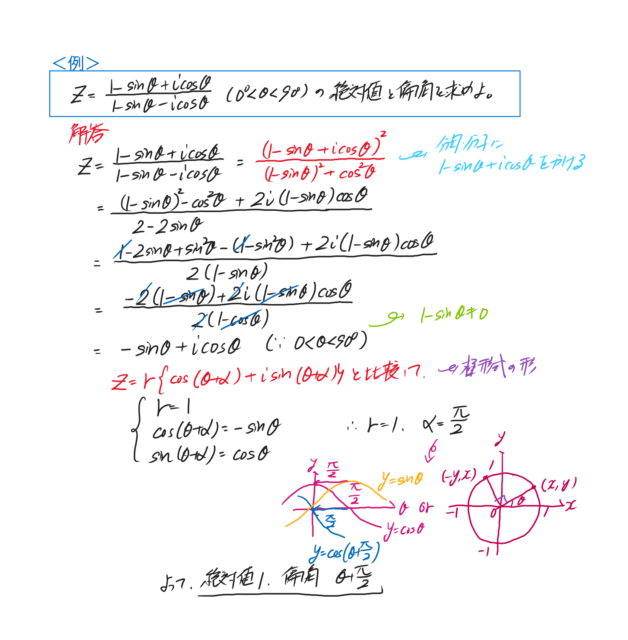 <例>
Z = (1-sinθ+icosθ)/(1-sinθ-icosθ) (0°<θ<90°) の絶対値と偏角を求めよ。
解答
Z = (1-sinθ+icosθ)/(1-sinθ-icosθ) = (1-sinθ+icosθ)²/((1-sinθ)²+cos²θ)
分母分子に
1-sinθ+icosθをかける
= ((1-sinθ)²-cos²θ+2i(1-sinθ)cosθ)/(2-2sinθ)
= (1-2sinθ+sin²θ-(1-sin²θ)+2i(1-sinθ)cosθ)/(2(1-sinθ))
= (-2(1-sinθ)+2i(1-sinθ)cosθ)/(2(1-cosθ))
1-sinθ≠0
= -sinθ+icosθ (∵ 0<θ<90°)
Z=r{cos(θ+α)+isin(θ+α)}と比較して、
極形式の形
r=1
cos(θ+α)=-sinθ
sin(θ+α)=cosθ
∴ r=1. α=π/2
y
π/2
y=sinθ
π/2
θ or
π/2
y=cosθ
y=cos(θ+π/2)
y
(-y,x)
1
(x,y)
-1
0
θ
1
x
-1
よって、絶対値1. 偏角 θ+π/2